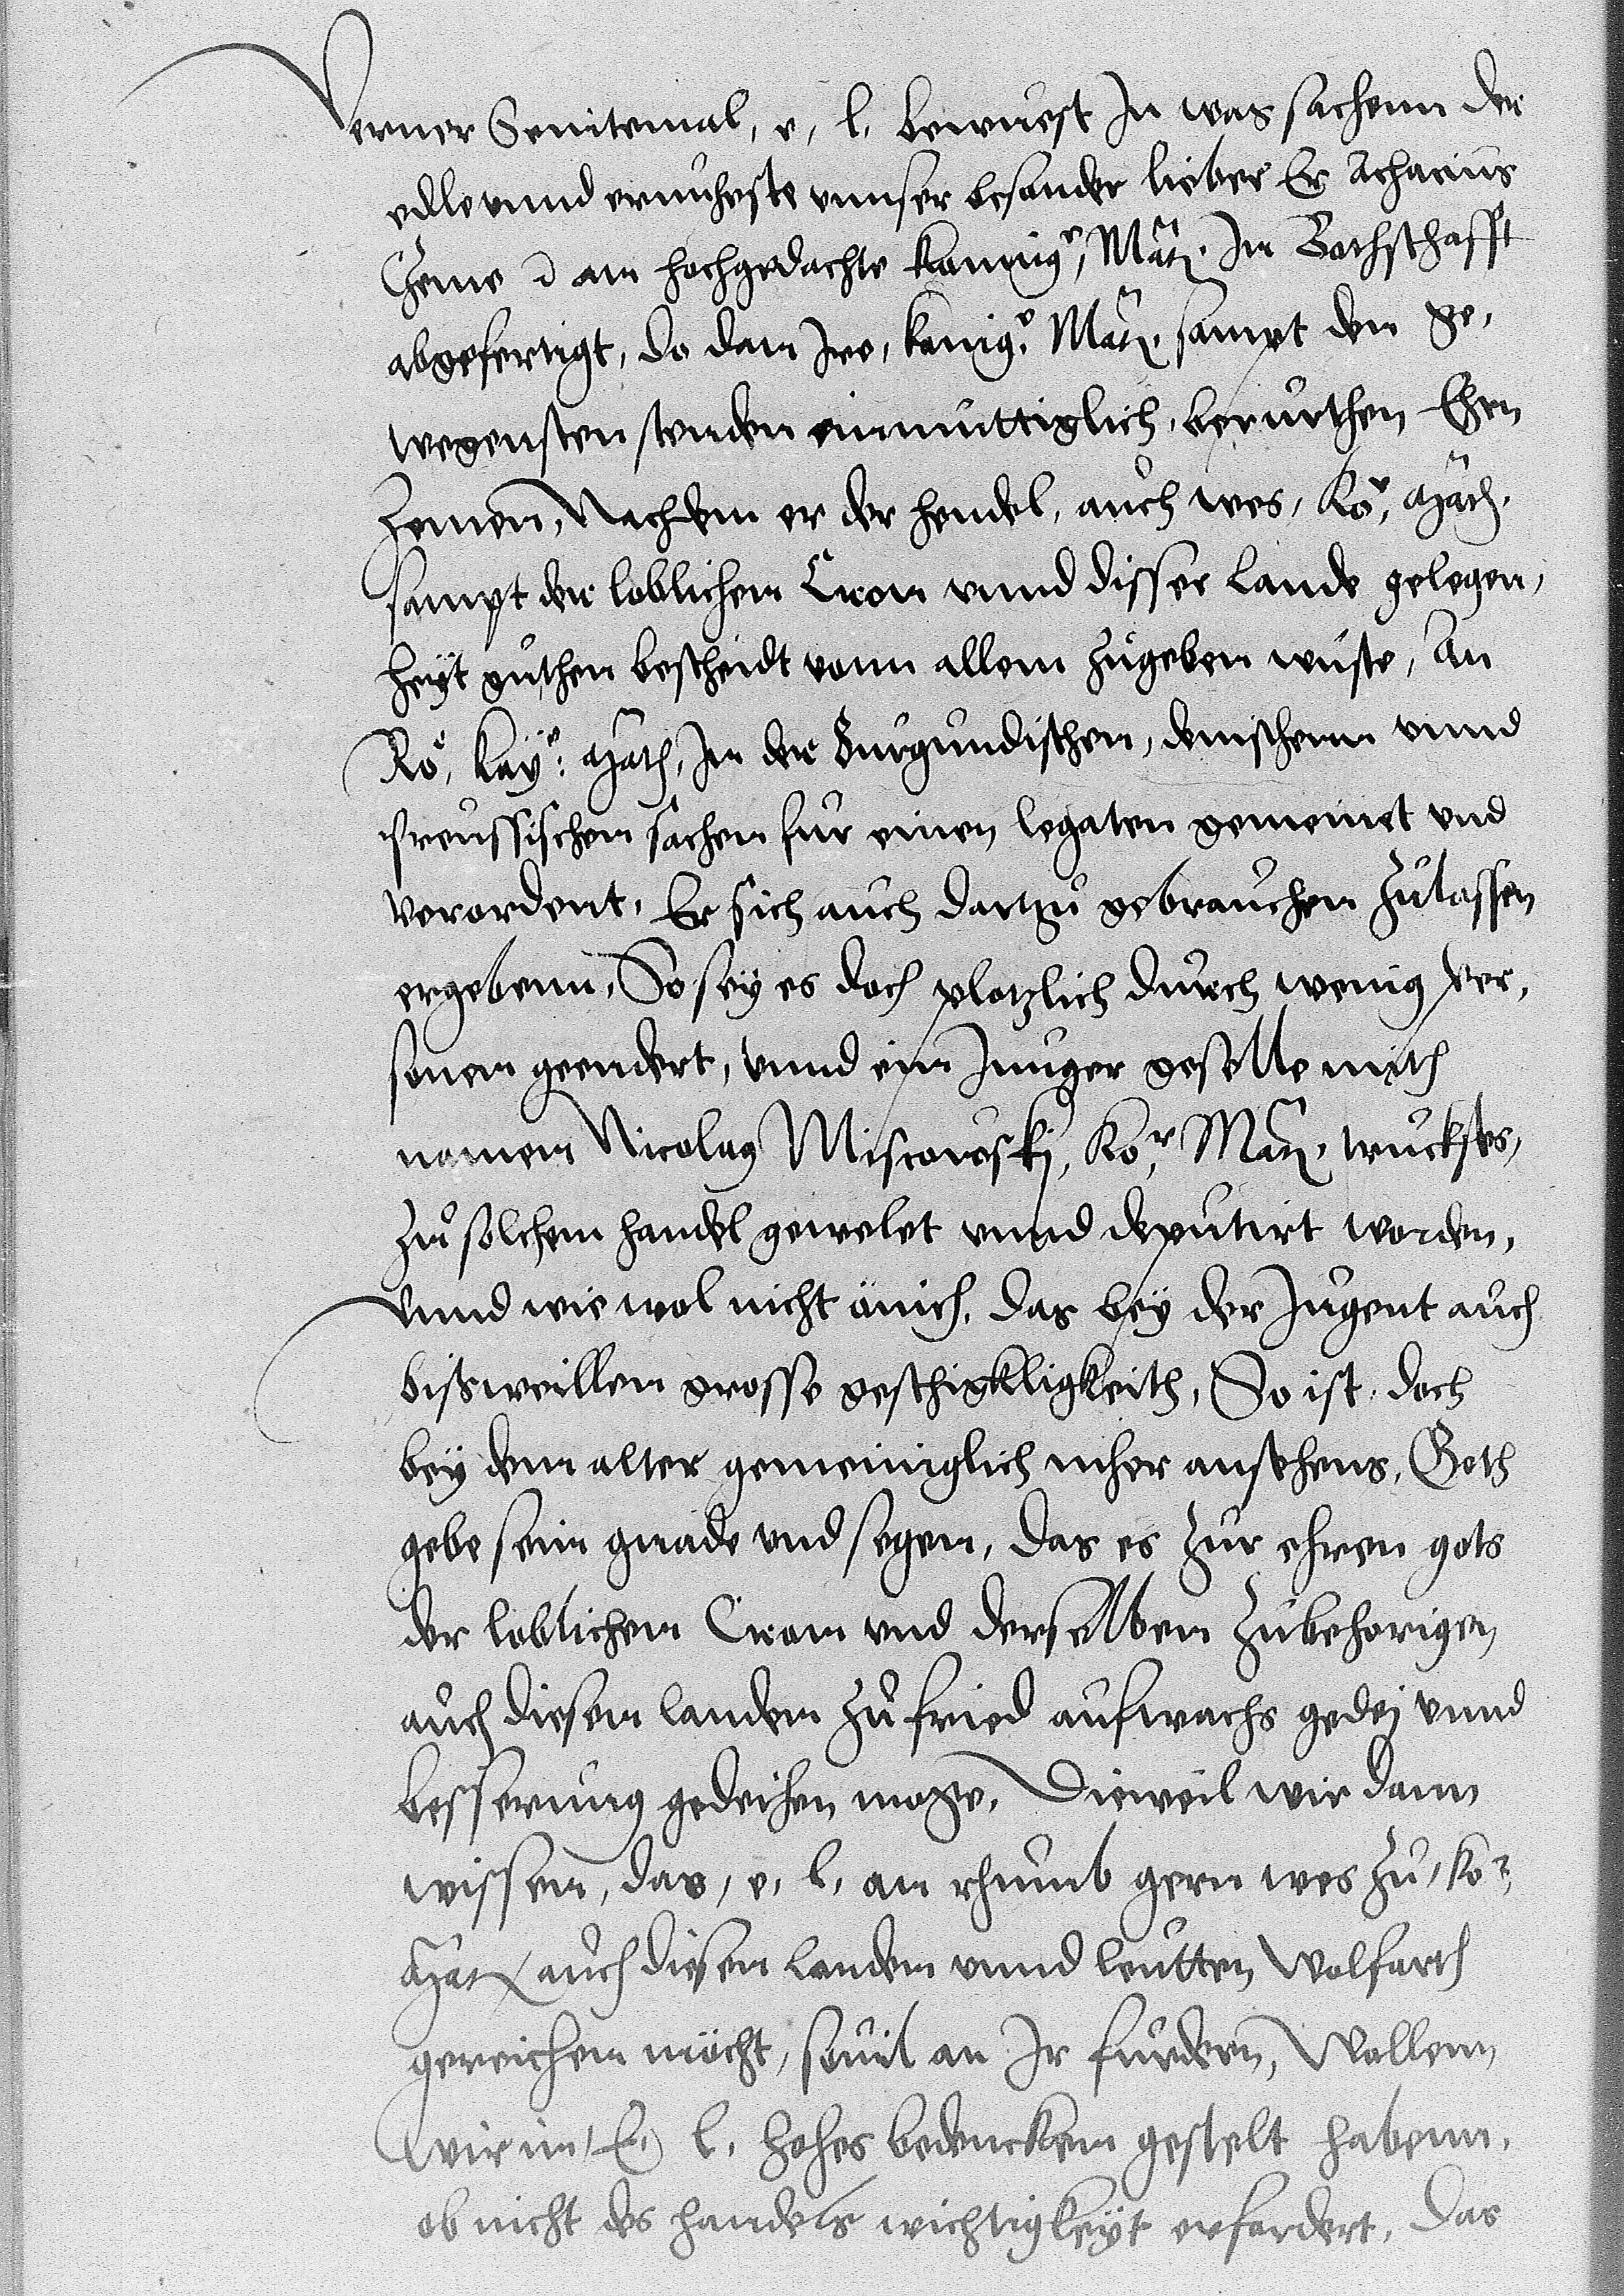 Verner Seintemal, e, l. bewuest In was sachenn der
edle unnd ernuheste unnser besonder lieber Er Achacius
Czeme d an hochgedachte konnigr, Mat. In Bothschafft
abgefertigt, do dan Ire, konigr. Mat. sampt den ge,
wegensten stenden einmuttiglich, berurthen Ehrn
Zemen, Nachdem er der hendel, auch wes, Kor, Mat.
sampt der loblichen Cron unnd disser Lande gelegen,
heyt guthen bescheidt vonn allem zugeben wuste, An
Ro, Kayr: Mat, In der Burgundischen, denischenn unnd
Preussischen sachen fur einen legaten gemeinet und
verordent, Er sich auch dartzu gebrauchen zulassen
ergebenn, So sey es doch plotzlich durch wenig per,
sonen geendert, unnd ein Junger geselle mith
namen Nicolaus Miscowski, Kor, Mat. truckses,
zu solchem handel gewelet unnd deputirt worden,
Unnd wie wol nicht änich, das bey der Jugent auch
bissweillen grosse geschigkligkeith, So ist, doch
bey dem alter gemeiniglich mher ansehens, Goth
gebe sein gnade und segen, das es zur ehren gots
der loblichen Cron und derselben zubehorigen
auch diesen landen zu fried aufwachs gedej unnd
besserung gedeihen moge, Dieweil wir dann
wissen, das, e, l, an rhumb gern wes zu, kor,
Mat, auch diesen landen unnd leutten wolfarth
gereichen möcht, souil an Ir furdern, Wollenn
wir in, E, l, hohes bedencken gestelt habenn,
ob nicht des handels wichtigkeyt erfordert, das